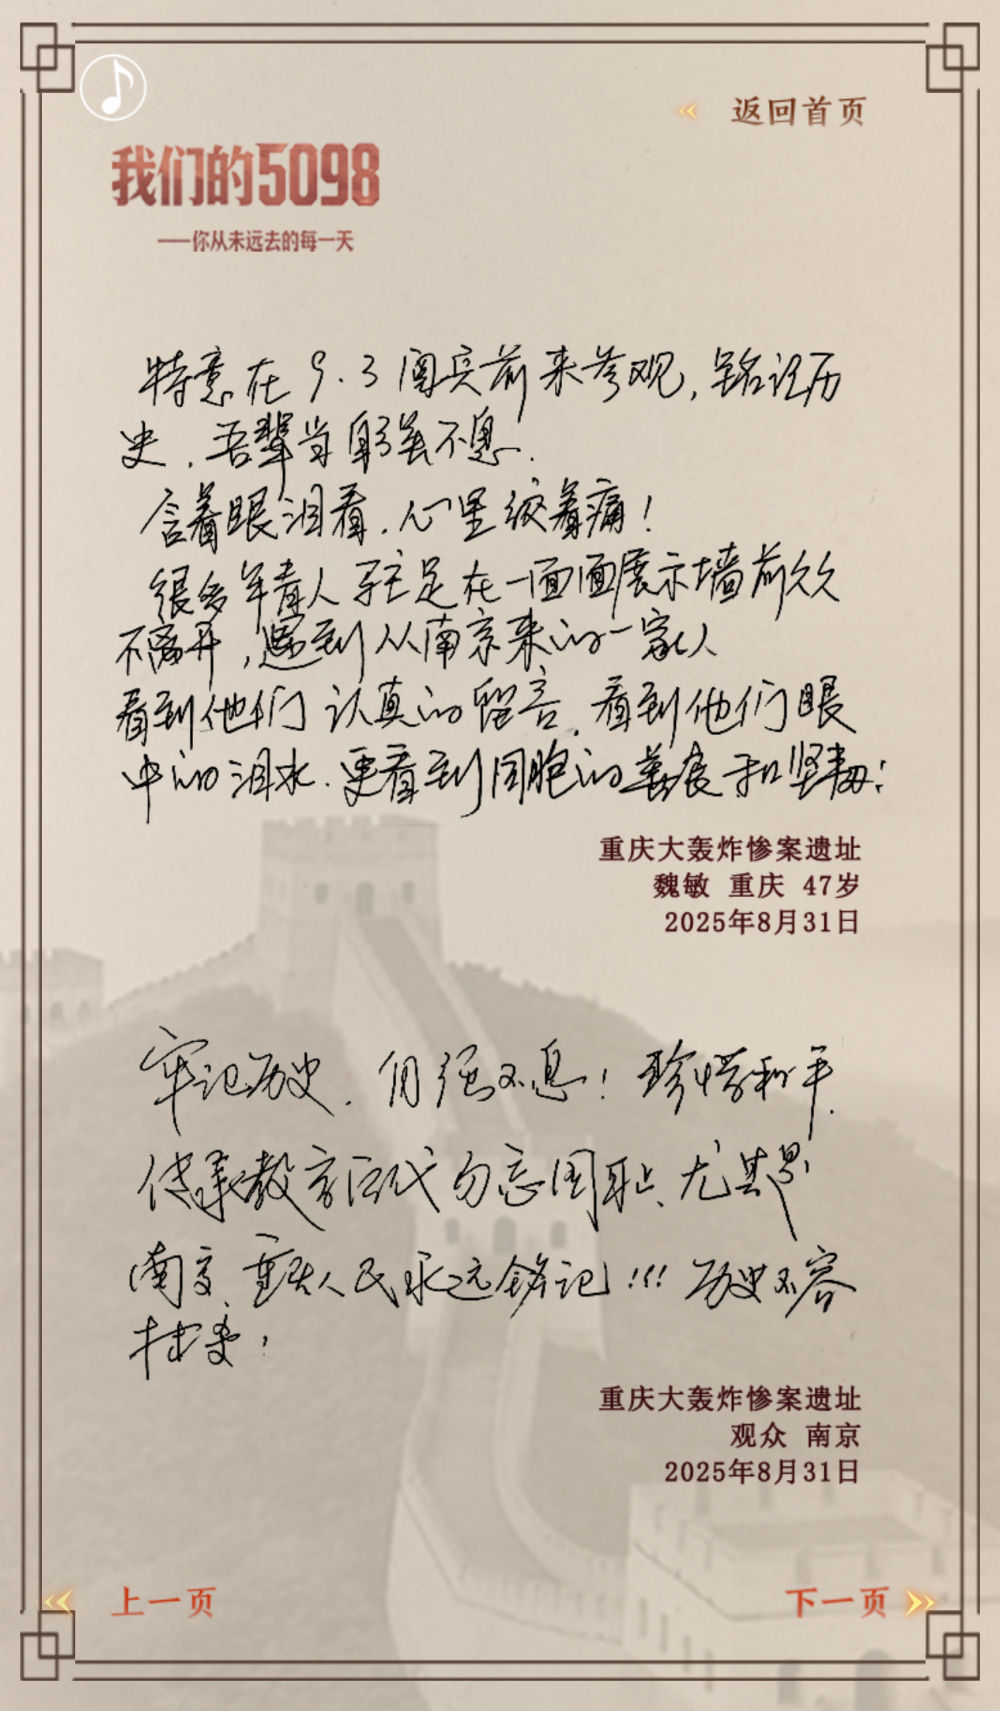 返回首页
我们的5098
——你从未远去的每一天
特意在9.3阅兵前来参观,铭记历
史,吾辈当自强不息.
含着眼泪看,心里绞着痛!
很多年青人驻足在一面面展示墙前久久
不离开,遇到从南京来的一家人
看到他们认真的留言,看到他们眼
中的泪水.更看到同胞的善良和坚韧!
重庆大轰炸惨案遗址
魏敏 重庆 47岁
2025年8月31日
牢记历史.自强不息!珍惜和平.
传承教育后代勿忘国耻、尤其是
南京、重庆人民永远铭记!!!历史不容
抹杀!
重庆大轰炸惨案遗址
观众 南京
2025年8月31日
上一页
下一页